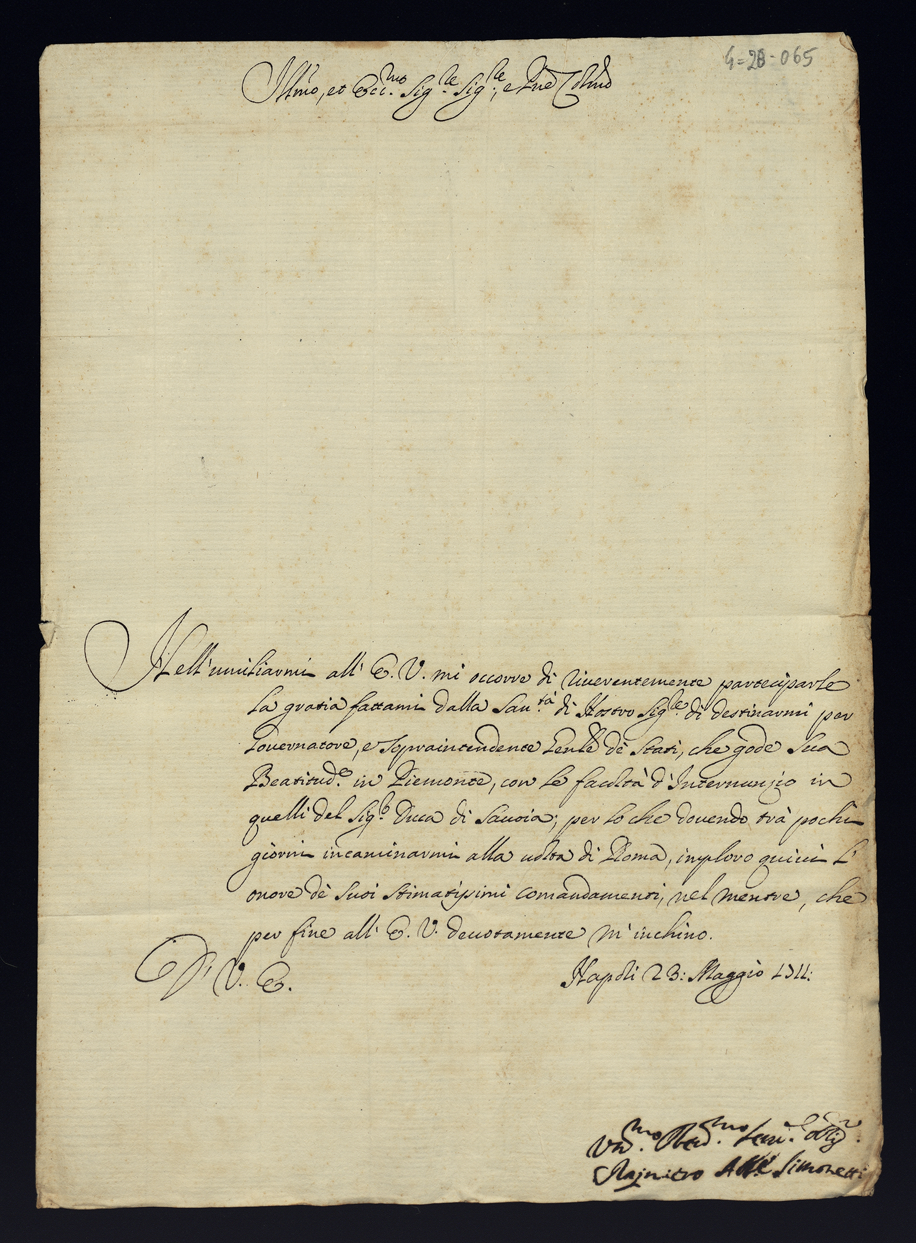 4-28-065
Ill.mo, et Ecc.mo Sig.re Sig.re, e Pne Col.mo
Nell'umiliarmi all' E. V. mi occorre di riverentemente participarle
la gratia fattami dalla San.tà di Nostro Sig.re di destinarmi per
Governatore, e Sopraintendente Genle de Stati, che gode Sua
Beatitud.e in Piemonte, con le facoltà d'Internunzio in
quelli del Sig.r Duca di Savoia; per lo che dovendo trà pochi
giorni incaminarmi alla volta di Roma, imploro quivi l'
onore de suoi stimatissimi comandamenti, nel mentre, che
per fine all' E. V. devotamente m'inchino.
D' V. E. Napoli 23: Maggio 1711:
Um.mo Dev.mo Ser.e Oblig.
Rajniero Ab.e Simonetti